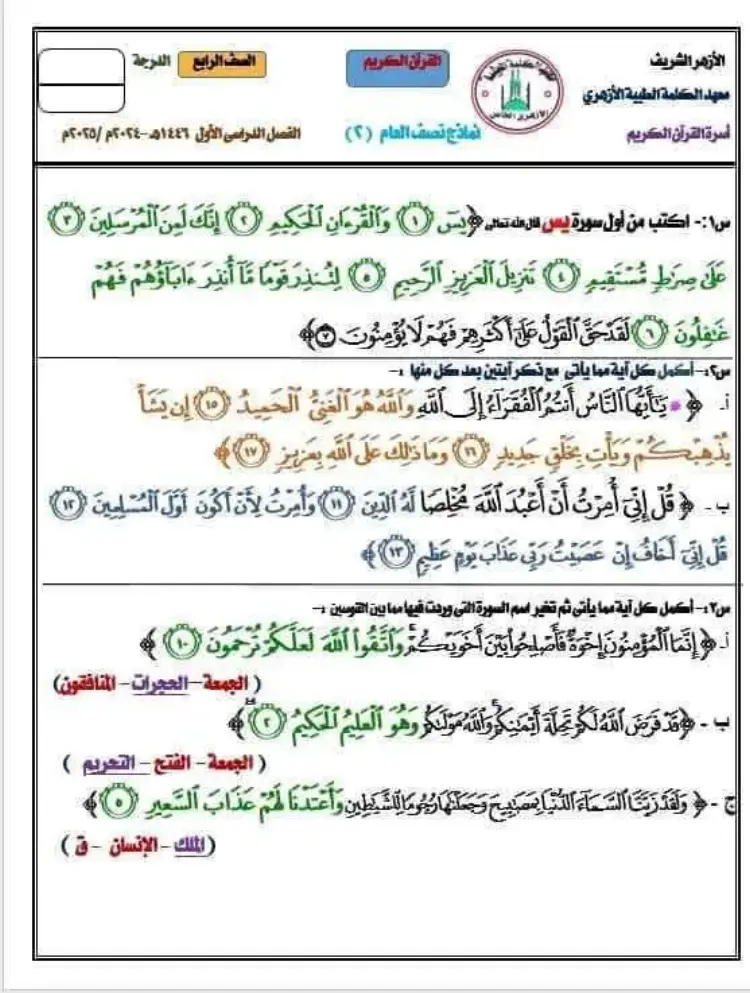 الأزهر الشريف
معهد الكلمة الطيبة الأزهري
أسرة القرآن الكريم
القرآن الكريم
نماذج نصف العام (٢)
الصف الرابع
الدرجة
الفصل الدراسى الأول ١٤٤٦هـ -٢٠٢٤م /٢٠٢٥م
س١:- اكتب من أول سورة يس قال الله تعالى ﴿يسٓ ١ وَٱلْقُرْءَانِ ٱلْحَكِيمِ ٢ إِنَّكَ لَمِنَ ٱلْمُرْسَلِينَ ٣
عَلَىٰ صِرَٰطٍ مُّسْتَقِيمٍ ٤ تَنزِيلَ ٱلْعَزِيزِ ٱلرَّحِيمِ ٥ لِتُنذِرَ قَوْمًا مَّآ أُنذِرَ ءَابَآؤُهُمْ فَهُمْ
غَٰفِلُونَ ٦ لَقَدْ حَقَّ ٱلْقَوْلُ عَلَىٰٓ أَكْثَرِهِمْ فَهُمْ لَا يُؤْمِنُونَ ٧﴾
س٢:- أكمل كل آية مما يأتى مع ذكر آيتين بعد كل منها :-
أ- ﴿ * يَٰٓأَيُّهَا ٱلنَّاسُ أَنتُمُ ٱلْفُقَرَآءُ إِلَى ٱللَّهِ وَٱللَّهُ هُوَ ٱلْغَنِىُّ ٱلْحَمِيدُ ١٥ إِن يَشَأْ
يُذْهِبْكُمْ وَيَأْتِ بِخَلْقٍ جَدِيدٍ ١٦ وَمَا ذَٰلِكَ عَلَى ٱللَّهِ بِعَزِيزٍ ١٧﴾
ب- ﴿ قُلْ إِنِّىٓ أُمِرْتُ أَنْ أَعْبُدَ ٱللَّهَ مُخْلِصًا لَّهُ ٱلدِّينَ ١١ وَأُمِرْتُ لِأَنْ أَكُونَ أَوَّلَ ٱلْمُسْلِمِينَ ١٢
قُلْ إِنِّىٓ أَخَافُ إِنْ عَصَيْتُ رَبِّى عَذَابَ يَوْمٍ عَظِيمٍ ١٣﴾
س٣:- أكمل كل آية مما يأتى ثم تخير اسم السورة التى وردت فيها مما بين القوسين :-
أ- ﴿ إِنَّمَا ٱلْمُؤْمِنُونَ إِخْوَةٌ فَأَصْلِحُوا۟ بَيْنَ أَخَوَيْكُمْ وَٱتَّقُوا۟ ٱللَّهَ لَعَلَّكُمْ تُرْحَمُونَ ١٠ ﴾
( الجمعة – الحجرات – المنافقون)
ب - ﴿قَدْ فَرَضَ ٱللَّهُ لَكُمْ تَحِلَّةَ أَيْمَٰنِكُمْ وَٱللَّهُ مَوْلَىٰكُمْ وَهُوَ ٱلْعَلِيمُ ٱلْحَكِيمُ ٢﴾
( الجمعة - الفتح – التحريم )
ج -﴿ وَلَقَدْ زَيَّنَّا ٱلسَّمَآءَ ٱلدُّنْيَا بِمَصَٰبِيحَ وَجَعَلْنَٰهَا رُجُومًا لِّلشَّيَٰطِينِ وَأَعْتَدْنَا لَهُمْ عَذَابَ ٱلسَّعِيرِ ٥ ﴾
(الملك – الإنسان - ق )